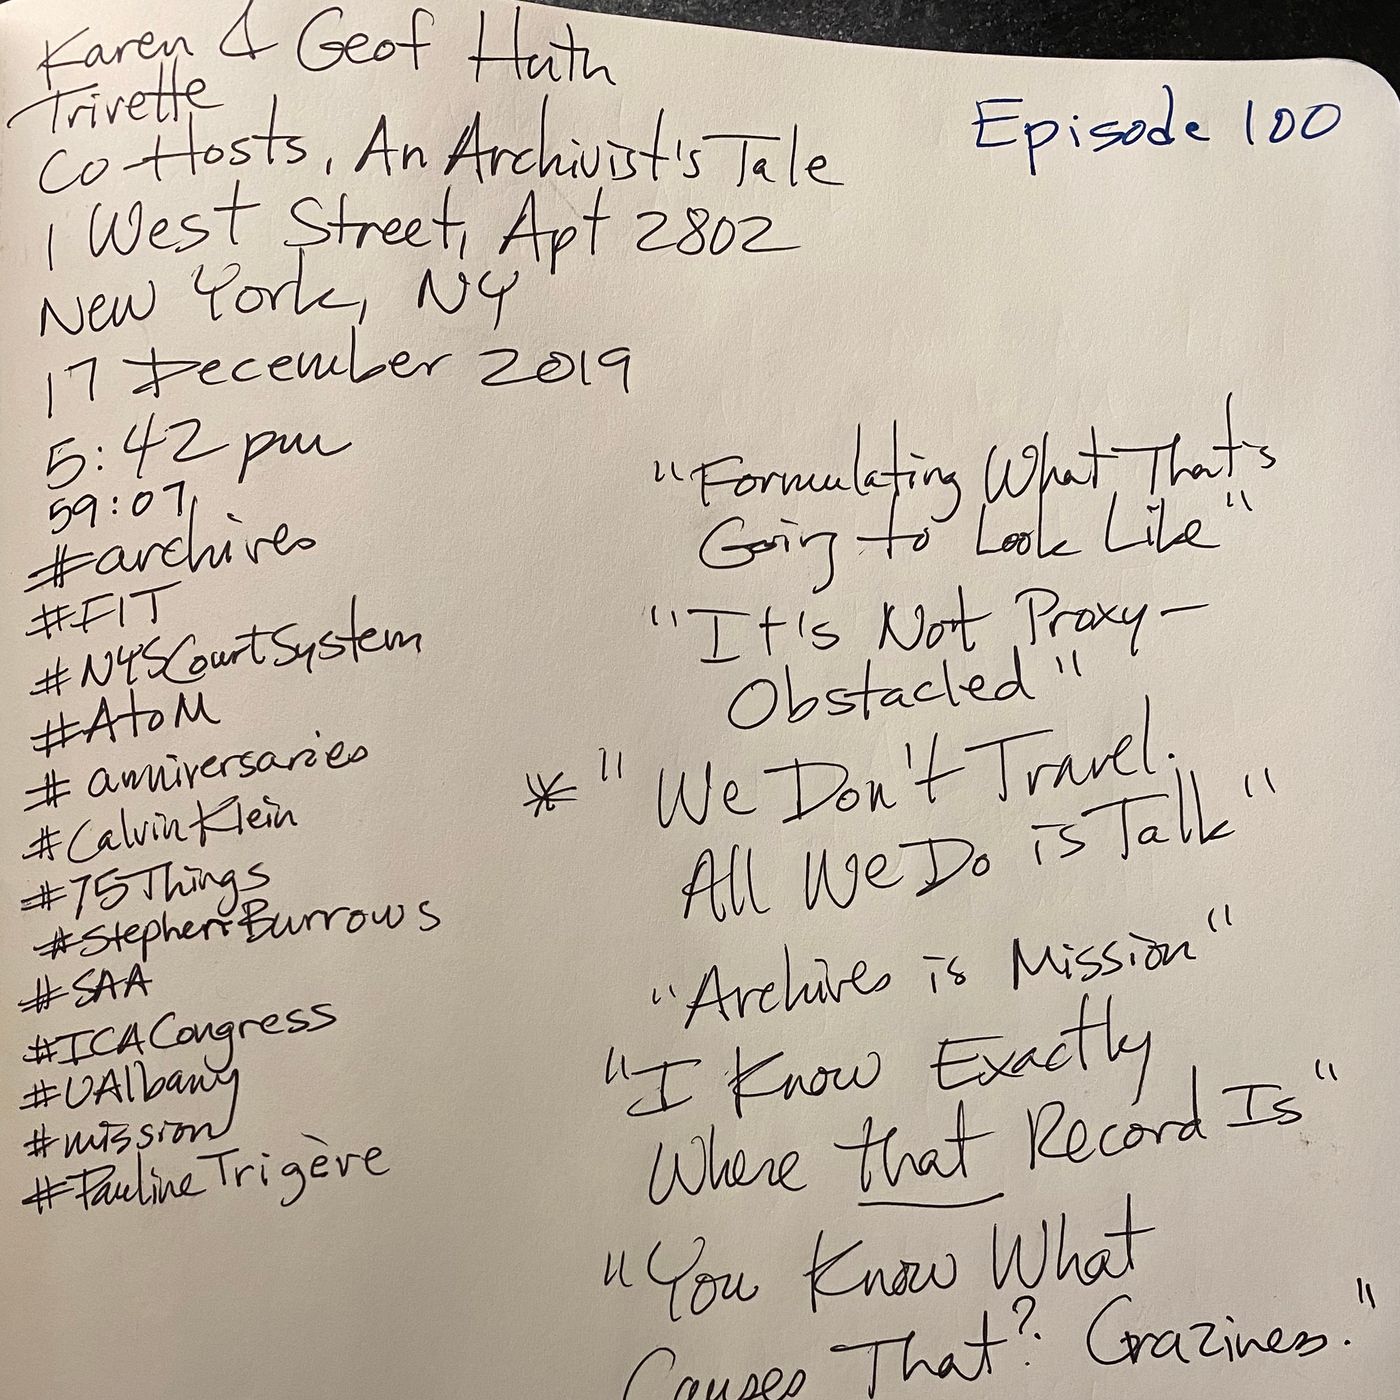 Karen & Geof Huth
Trivette
Co-Hosts, An Archivist's Tale
Episode 100
1 West Street, Apt 2802
New York, NY
17 December 2019
5:42 pm
59:07
#archives
#FIT
#NYSCourtSystem
#AtoM
#anniversaries
#CalvinKlein
#75Things
#StephenBurrows
#SAA
#ICACongress
#UAlbany
#mission
#PaulineTrigère
"Formulating What That's
Going to Look Like"
"It's Not Proxy-
Obstacled"
* "We Don't Travel.
All We Do is Talk"
"Archives is Mission"
"I Know Exactly
Where that Record Is"
"You Know What
Causes That? Craziness."